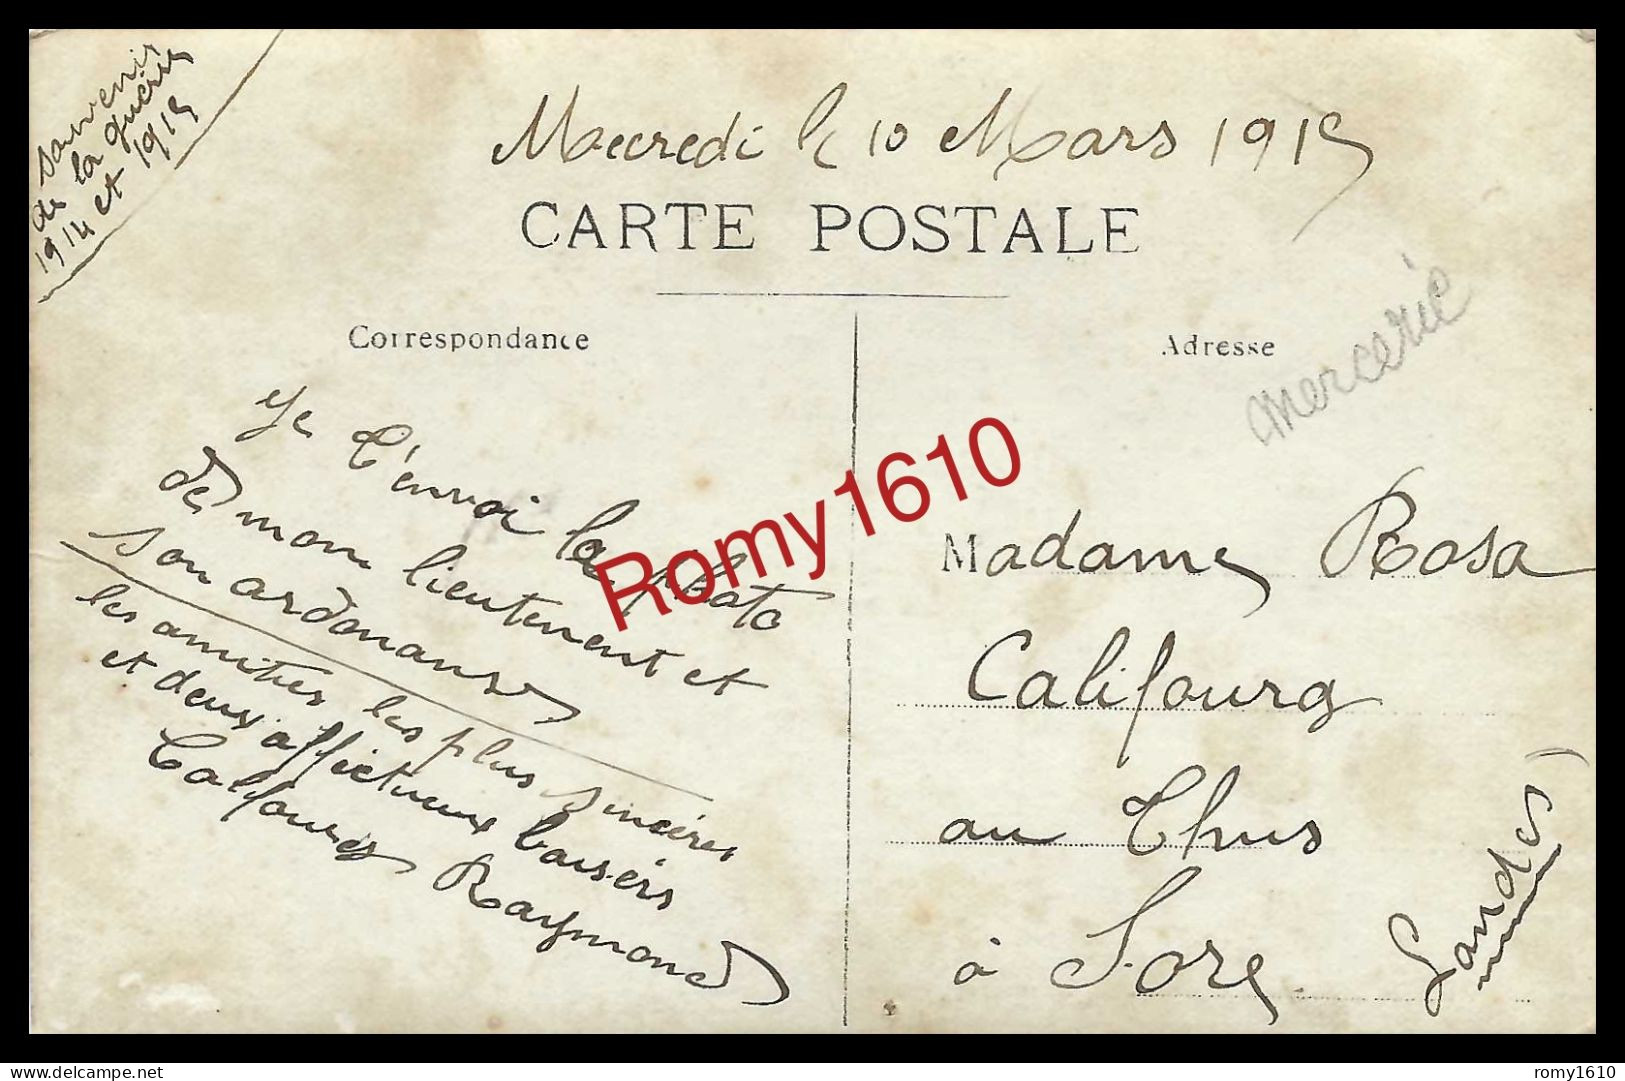 souvenir
de la guérre
1914 et 1915
Mecredi le 10 Mars 1915
CARTE POSTALE
Correspondance
Adresse
mercerie
Je t'envoi la photo
de mon lieutenent et
son ardonans
les amitiés les plus sincères
et deux affictueux baisérs
Califourg Raymond
Madame Rosa
Califourg
au Thus
à Sore
Landes)
Romy1610
delcampe.net
romy1610